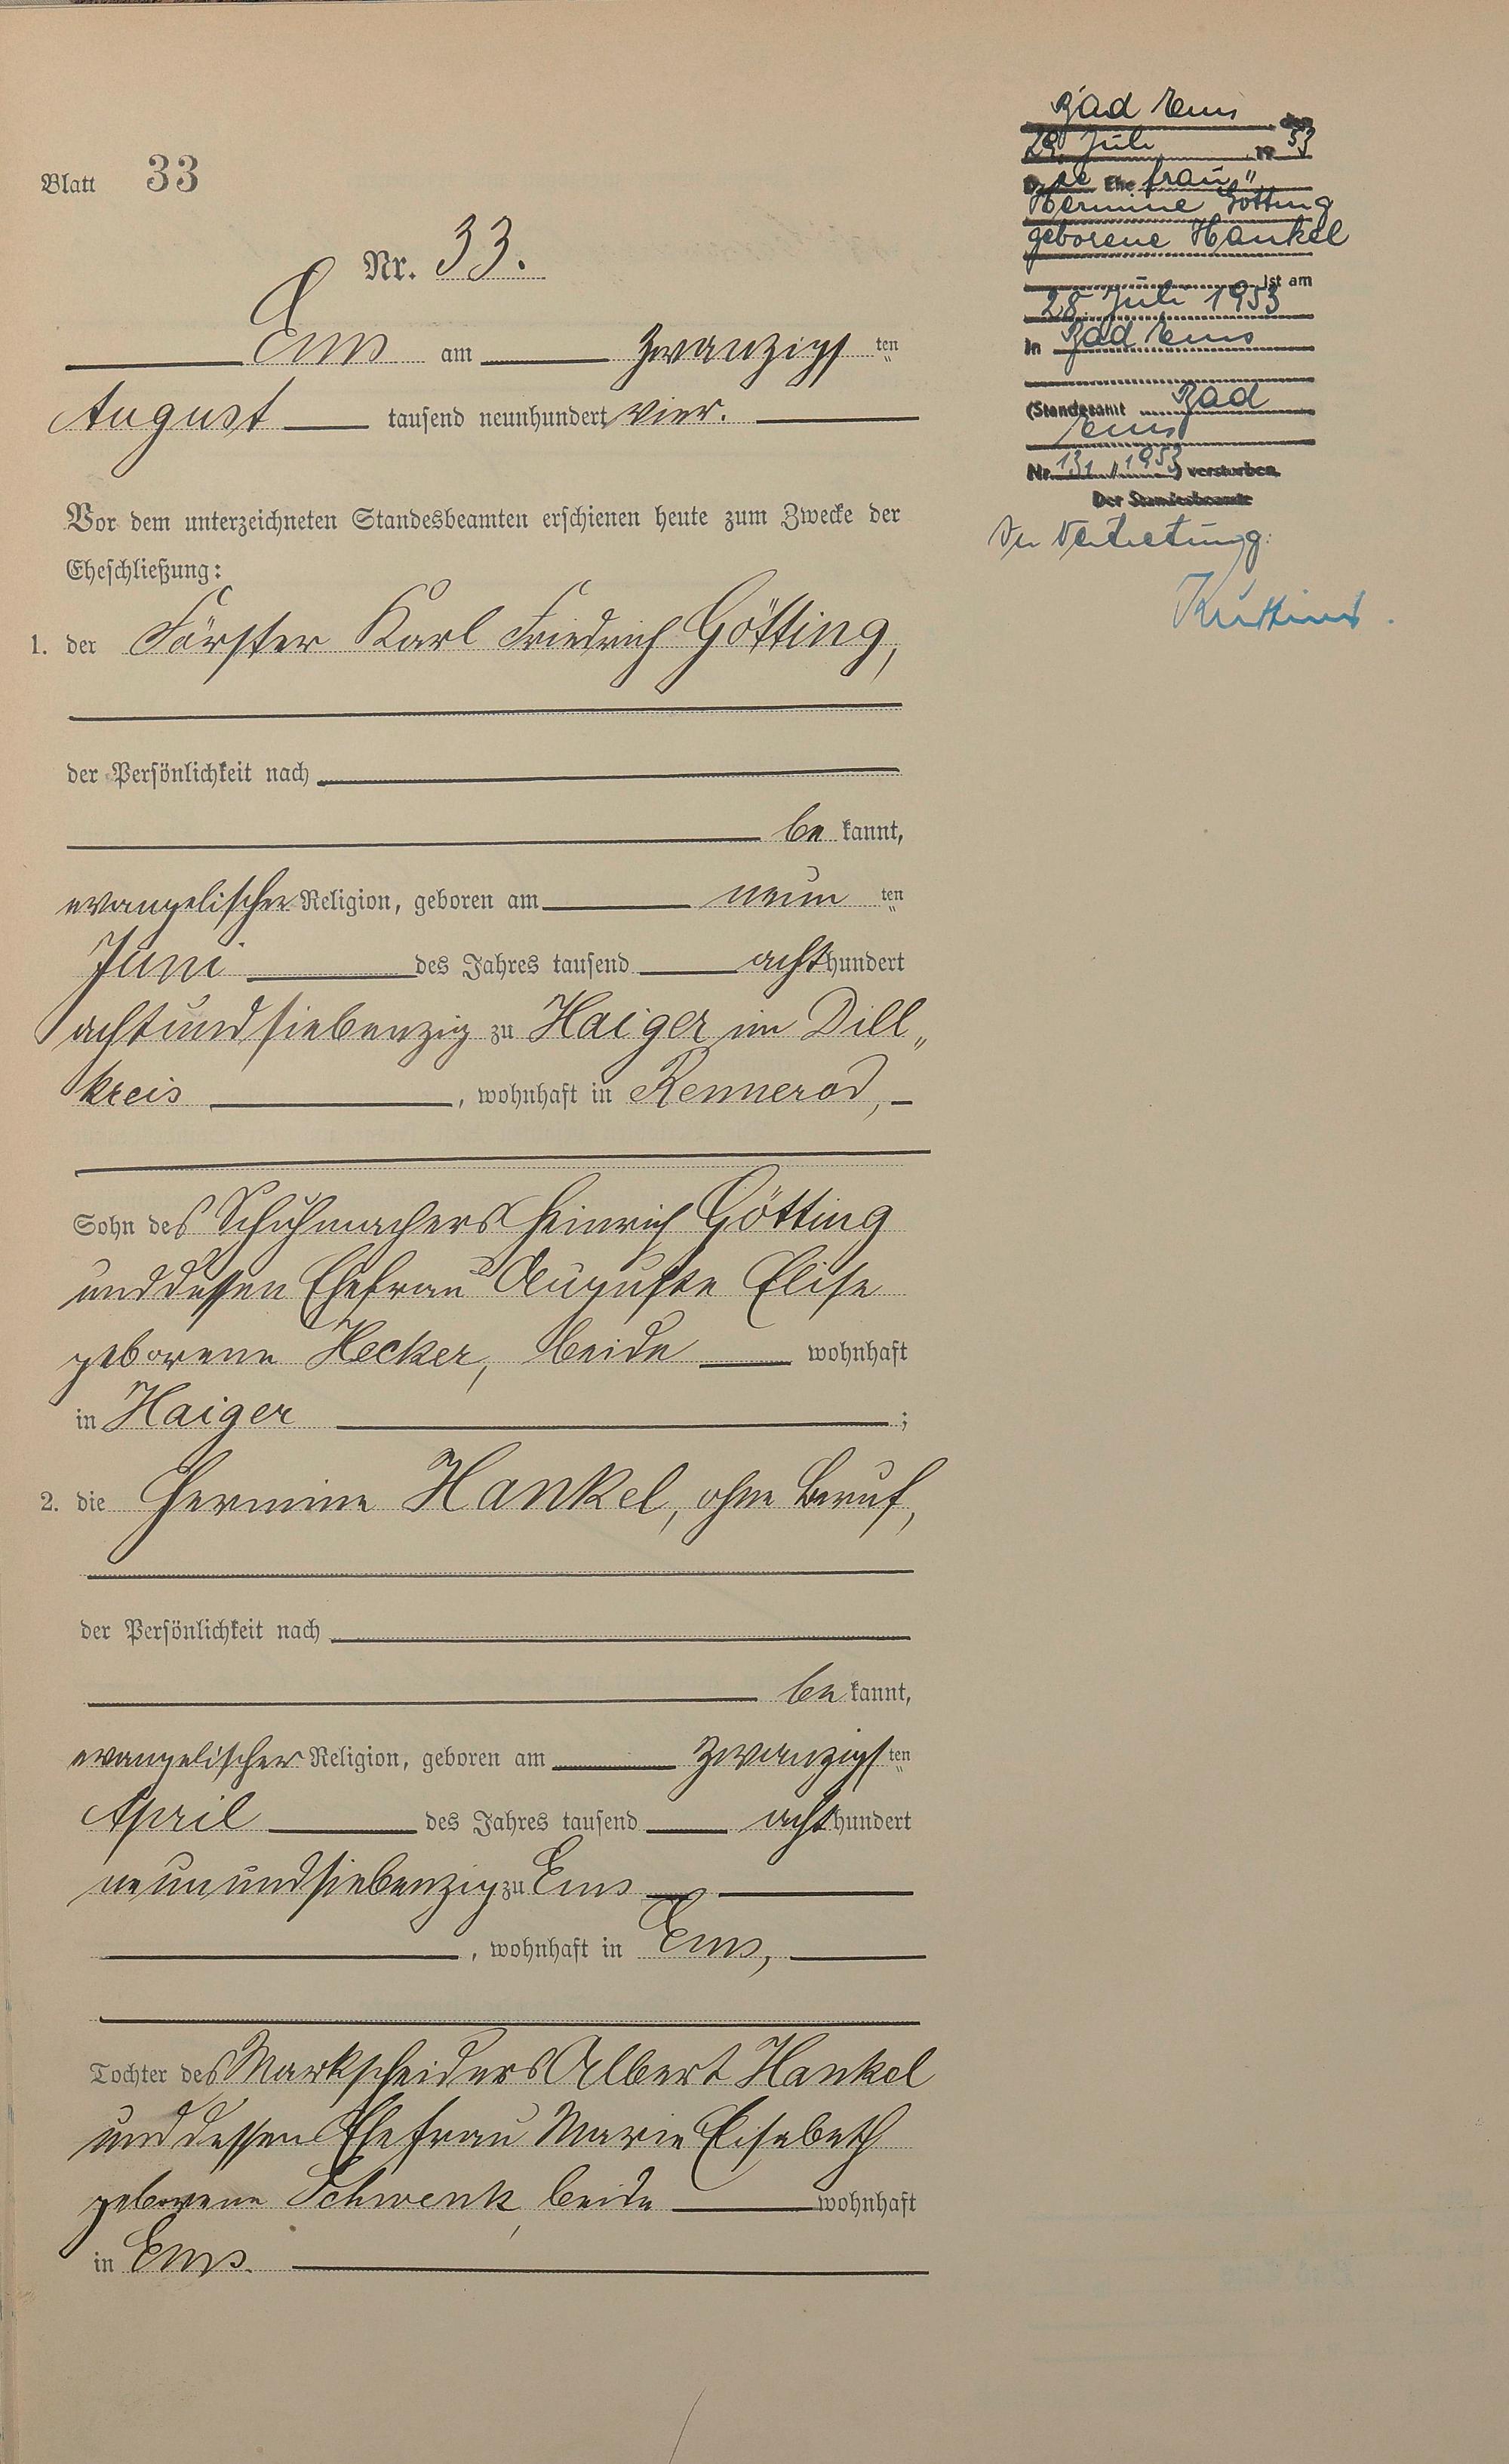 Blatt 33
Nr. 33.
Ems am zwanzigsten
August tausend neunhundert vier.
Vor dem unterzeichneten Standesbeamten erschienen heute zum Zwecke der
Eheschließung:
1. der Förster Karl Friedrich Götting,
der Persönlichkeit nach
be kannt,
evangelischer Religion, geboren am neun ten
Juni des Jahres tausend acht hundert
achtundsiebenzig zu Haiger im Dill„
kreis, wohnhaft in Rennerod,
Sohn des Schuhmachers Heinrich Götting
und dessen Ehefrau Auguste Elise
geborene Hecker, beide wohnhaft
in Haiger ;
2. die Hermine Hankel, ohne Beruf,
der Persönlichkeit nach
be kannt,
evangelischer Religion, geboren am zwanzigsten
April des Jahres tausend acht hundert
neunundsiebenzig zu Ems
, wohnhaft in Ems,
Tochter des Markscheiders Albert Hankel
und dessen Ehefrau Marie Elisabeth
geborene Schwenk, beide wohnhaft
in Ems.
Bad Ems, den
29. Juli 19 53
Die Ehe frau
Hermine Götting
geborene Hankel
ist am
28. Juli 1953
in Bad Ems
(Standesamt Bad
Ems
Nr. 131 / 1953) verstorben.
Der Standesbeamte
In Vertretung: